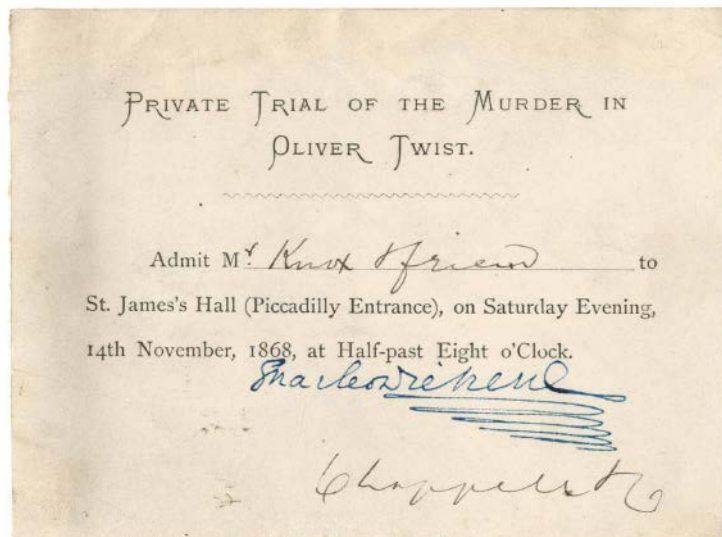 PRIVATE TRIAL OF THE MURDER IN
OLIVER TWIST.
Admit Mr. Knox & friend to
St. James's Hall (Piccadilly Entrance), on Saturday Evening,
14th November, 1868, at Half-past Eight o'Clock.
Charles Dickens
Chappell & Co